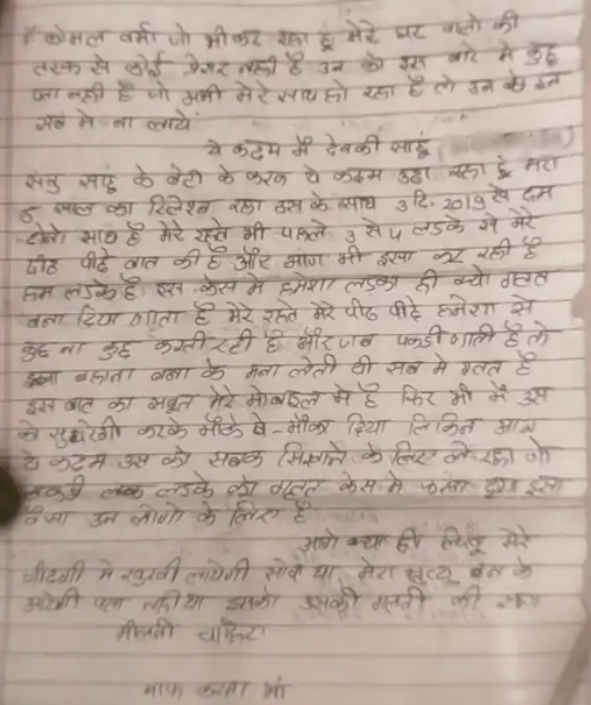 कोमल वर्मा जो भी कर रहा हूं मेरे घर वालो की
तरफ से कोई प्रेशर नही है उन को इस बारे मे कुछ
पता नही है जो अभी मेरे साथ हो रहा है तो उन को इन
सब मे ना लाये
ये कदम मैं देवकी साहूं
साहूं के बेटी के कारण ये कदम उठा रहा हूं मेरा
5 साल का रिलेशन रहा उस के साथ 3 दि. 2019 से हम
दोनो साथ है मेरे रहते भी पहले 3 से 4 लडके से मेरे
पीठ पीछे बात की है और आज भी इसा कर रही है
हम लडके है इस केस मे हमेशा लडका ही क्यो गलत
बना दिया जाता है मेरे रहते मेरे पीठ पीछे हमेशा से
कुछ ना कुछ करती रही है और जब पकडी जाती है तो
बहाना बना के मना लेती थी सब मे गलत है
इस बात का सबूत मेरे मोबाइल मे है फिर भी मैं उस
को सुधरेगी करके मौके बे-मौका दिया लिकिन आज
ये कदम उस को सबक सिखाने के लिए ले रहा जो
लडकी लडके को गलत केस मे फसा इसा
उन लोगो के लिए है
आगे क्या ही लिखू मेरे
जीदगी मे खुशी लायेगी सोचा था मेरा मृत्यू बन के
आयेगी पता नही था इसको उसकी गलती की
मीलनी चाहिए
माफ करना मां